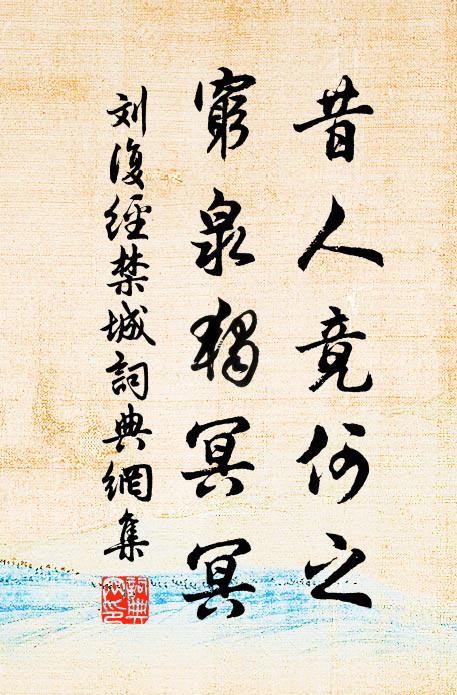 昔人竟何之
窮泉獨冥冥
刘復經禁城詞典網集